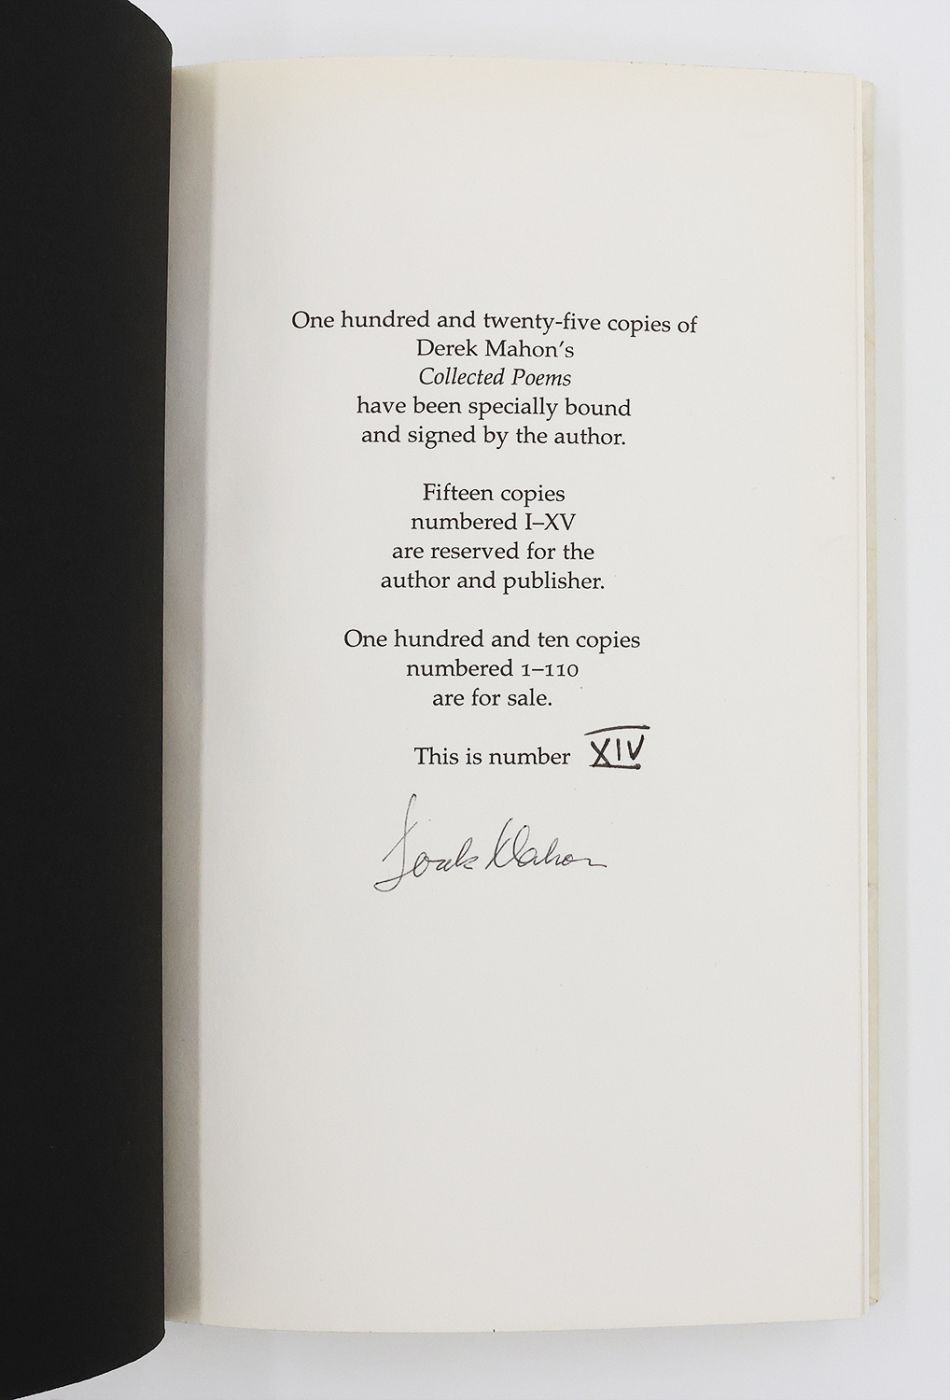 One hundred and twenty-five copies of
Derek Mahon's
Collected Poems
have been specially bound
and signed by the author.
Fifteen copies
numbered I–XV
are reserved for the
author and publisher.
One hundred and ten copies
numbered 1–110
are for sale.
This is number XIV
Derek Mahon